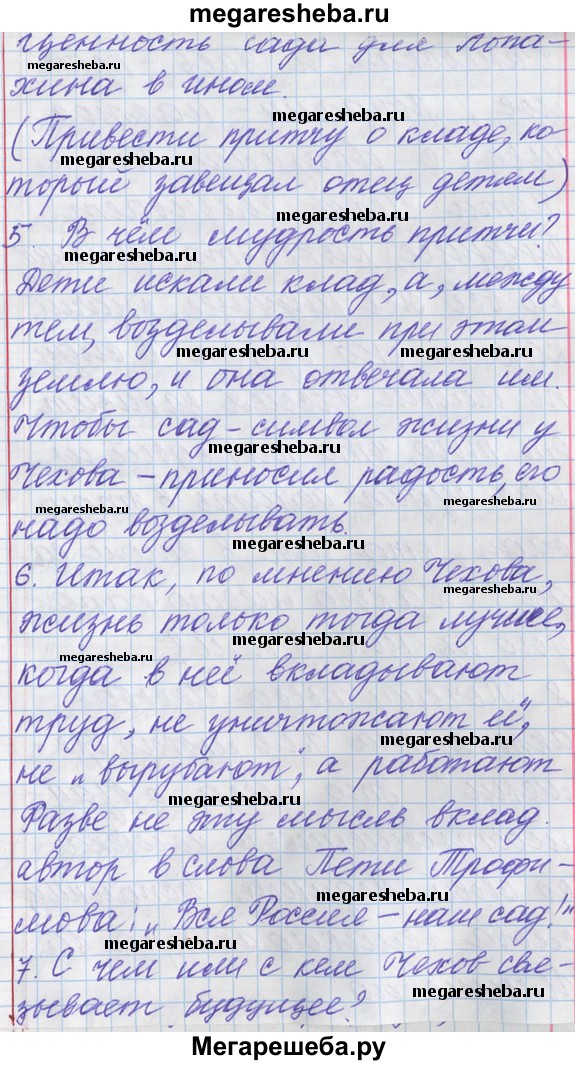 megaresheba.ru
ценность сада для Лопа-
megaresheba.ru
хина в ином.
megaresheba.ru
(Привести притчу о кладе, ко-
megaresheba.ru
торый завещал отец детям)
5. В чём мудрость притчи?
megaresheba.ru
Дети искали клад, а, между
тем, возделывали при этом
megaresheba.ru megaresheba.ru
землю, и она отвечала им.
Чтобы сад - символ жизни у
megaresheba.ru
Чехова - приносил радость, его
megaresheba.ru megaresheba.ru
надо возделывать.
megaresheba.ru
6. Итак, по мнению Чехова,
megaresheba.ru
жизнь только тогда лучше,
megaresheba.ru
megaresheba.ru
когда в неё вкладывают
труд, не уничтожают её,
megaresheba.ru
не „вырубают", а работают
megaresheba.ru
Разве не эту мысль вклад.
автор в слова Пети Трофи-
megaresheba.ru
мова: „Вся Россия - наш сад!"
megaresheba.ru
7. С чем или с кем Чехов свя-
megaresheba.ru
зывает будущее?
Мегарешеба.ру